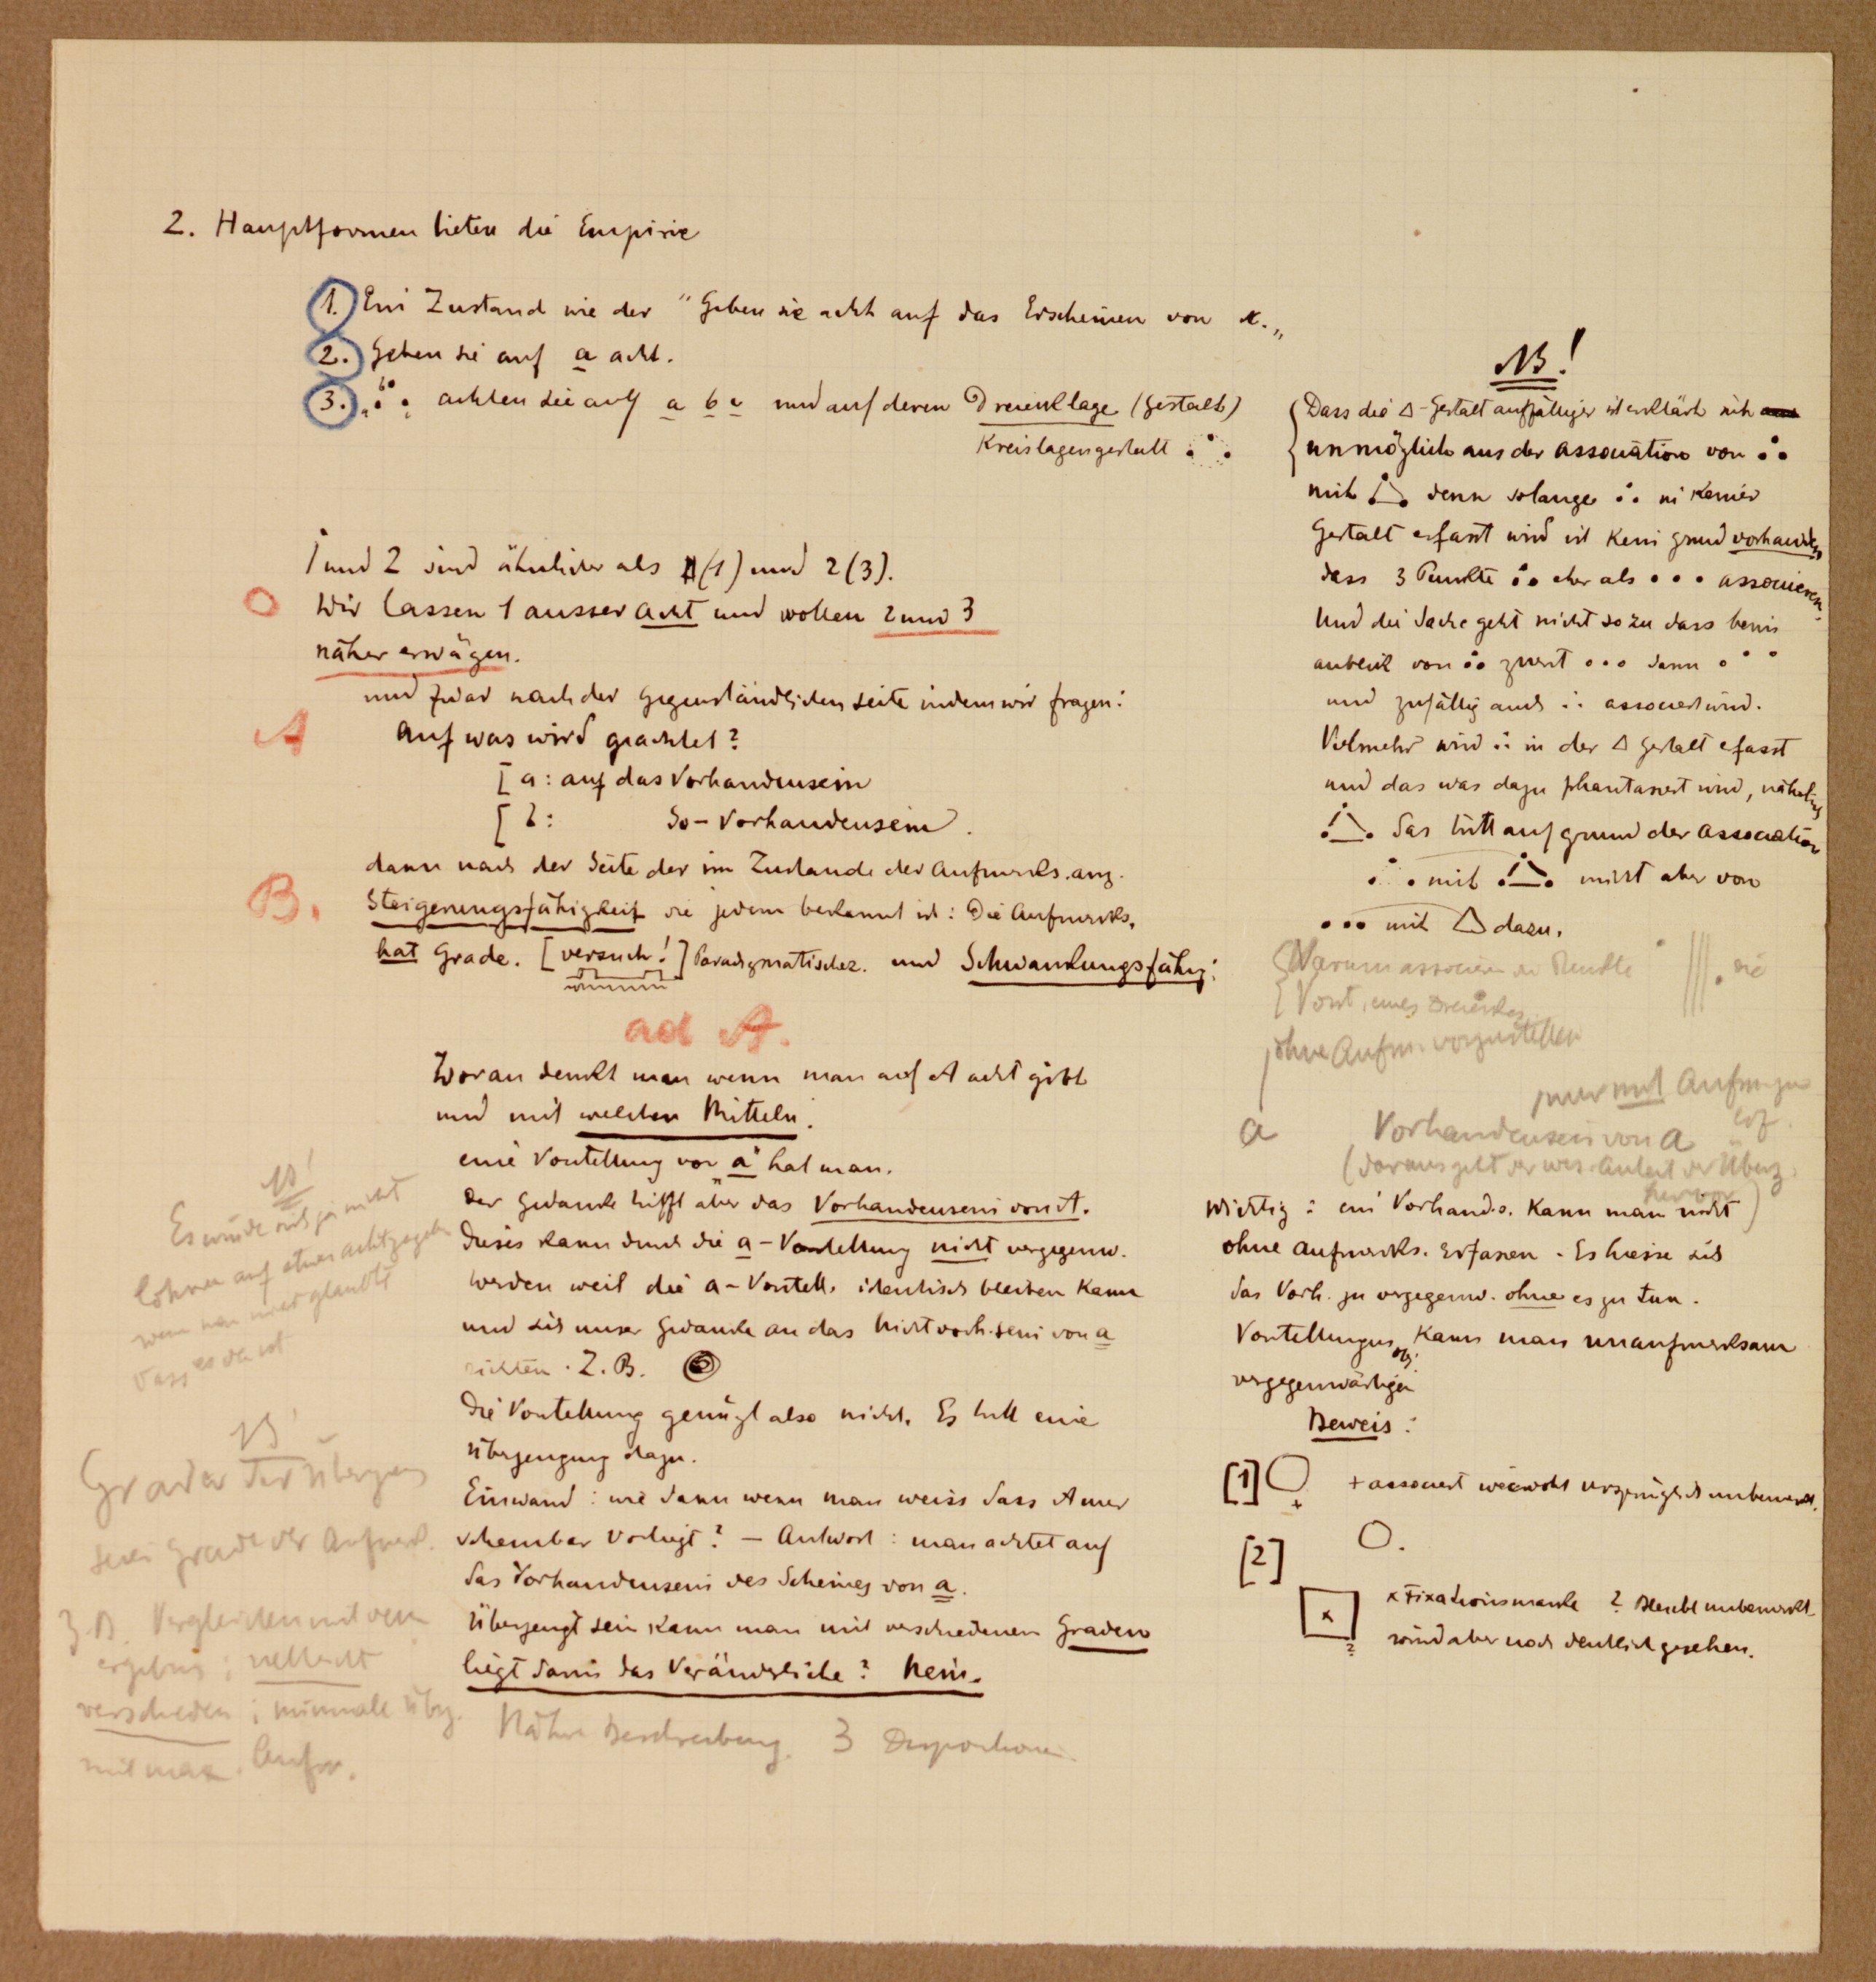 2. Hauptformen bieten die Empirie
1. Ein Zustand wie der "Geben sie acht auf das Erscheinen von x.„
2. Geben sie auf a acht.
3. achten sie auf a b c und auf deren Dreiecklage (Gestalt)
Kreislagengestalt
1 und 2 sind ähnlicher als (1) und 2 (3).
Wir lassen 1 ausser acht und wollen 2 und 3
näher erwägen.
und zwar nach der gegenständlichen Seite indem wir fragen:
A auf was wird geachtet?
[ a: auf das Vorhandensein
[ b: So-Vorhandensein.
dann nach der Seite der im Zustande der Aufmerks. ang.
B. Steigerungsfähigkeit die jedem bekannt ist: Die Aufmerks.
hat Grade. [versuch!] Paradigmatischer. und Schwankungsfähig:
ad A.
Woran denkt man wenn man auf A acht gibt
und mit welchen Mitteln.
eine Vorstellung von "a" hat man.
Der Gedanke trifft aber das Vorhandensein von A.
Dieses kann durch die a-Vorstellung nicht vergegenw.
werden weil die a-Vorstell. identisch bleiben kann
und sich unser Gedanke an das Nichtvorh.sein von a
richten. Z. B.
Die Vorstellung genügt also nicht. Es tritt eine
Überzeugung dazu.
Einwand: wie dann wenn man weiss dass A nur
scheinbar vorliegt? – Antwort: man achtet auf
das Vorhandensein des Scheines von a.
Überzeugt sein kann man mit verschiedenen Graden
liegt darin das Veränderliche? Nein.
Nähere Beschreibung. 3 Dispositionen
NB!
Es würde sich ja nicht
lohnen auf etwas achtzugeben
wenn man nicht glaubte
dass es da ist
NB!
Grade der Überzeug
sind Grade der Aufmerk.
z B. Vergleichen mit dem
ergebnis; vielleicht
verschieden; minimale Überz.
mit max. Aufm.
NB!
Dass die △-Gestalt auffälliger ist erklärt sich
unmöglich aus der Association von
mit denn solange in keiner
Gestalt erfasst wird ist kein grund vorhanden
dass 3 Punkte eher als • • • associieren.
Und die Sache geht nicht so zu dass beim
anblick von zuerst • • • dann
und zufällig auch associert wird.
Vielmehr wird in der △ gestalt erfasst
und das was dazu phantasiert wird, nämlich
das tritt auf grund der Association
mit nicht aber von
• • • mit △ dazu.
Warum associieren die Punkte die
Vorst. eines Dreieckes
ohne Aufm. vorzustellen
nur mit Aufm. zu
a Vorhandensein von a
(daraus geht der wes. Anteil der Überz.
hervor)
Wichtig: ein Vorhand.s. kann man nicht
ohne Aufmerks. erfassen. Es hiesse sich
das Vorh. zu vergegenw. ohne es zu tun.
Vorstellungen kann man unaufmerksam
vergegenwärtigen
Beweis:
[1] + + associert wiewohl ursprünglich unbemerkt.
[2]
x x Fixationsmarke 2 Bleibt unbemerkt
2 wird aber noch deutlich gesehen.